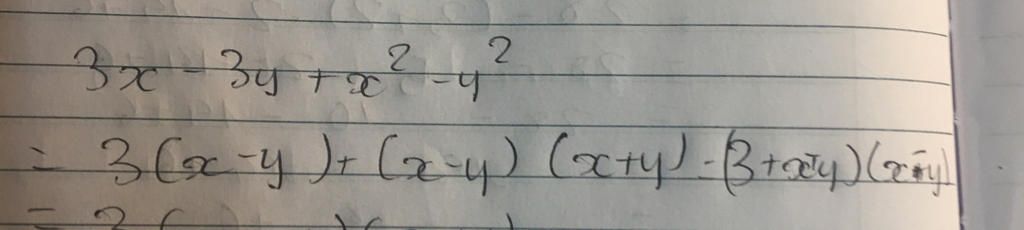 3x - 3y + x² - y²
= 3(x - y) + (x - y) (x + y) - (3 + x + y)(x - y)